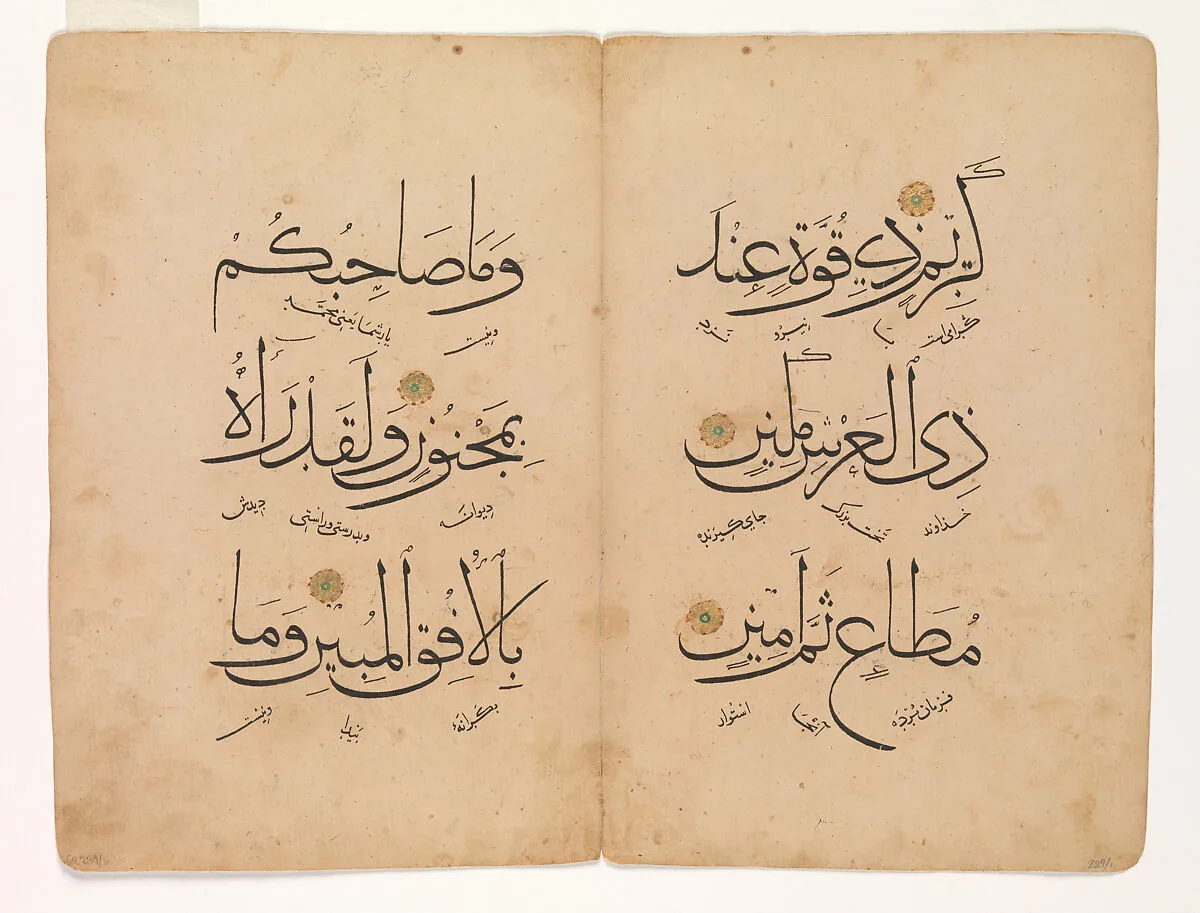 كَرِيمٍ ذِي قُوَّةٍ عِنْدَ
گرامی است با نیرو نزد
ذِي الْعَرْشِ مَكِينٍ
خداوند تخت بزرگ جای گیرنده
مُطَاعٍ ثَمَّ أَمِينٍ
فرمان برده استوار
وَمَا صَاحِبُكُمْ
ونیست یار شما یعنی محمد
بِمَجْنُونٍ وَلَقَدْ رَآهُ
دیوانه وبدرستی وراستی دیدش
بِالْأُفُقِ الْمُبِينِ وَمَا
بکرانهٔ پیدا ونیست
289/1